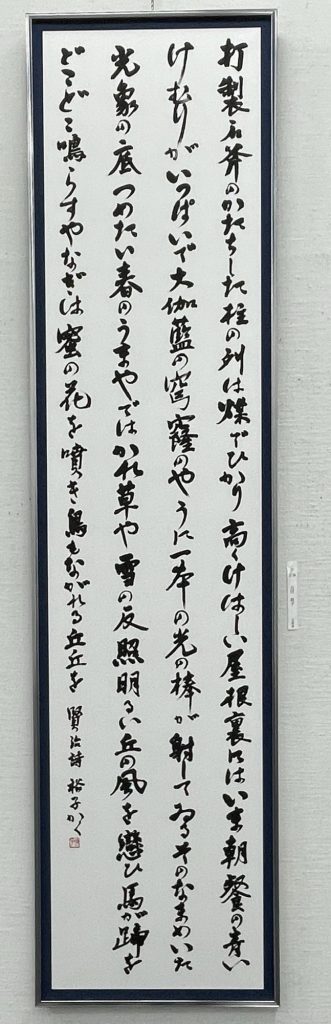 打製石斧のかたちした柱の列は煤でひかり高くけはしい屋根裏にはいま朝餐の青い
けむりがいつぱいで大伽藍の穹窿のやうに一本の光の棒が射してゐるそのなまめいた
光象の底つめたい春のうまやではかれ草や雪の反照明るい丘の風を戀ひ馬が蹄を
どこどこ鳴らすやなぎは蜜の花を噴き鳥もながれる丘丘を 賢治詩 裕子かく